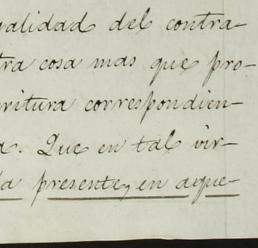 galidad del contra-
tra cosa mas que pro-
ritura correspondien-
a. Que en tal vir-
la presente, en aque-